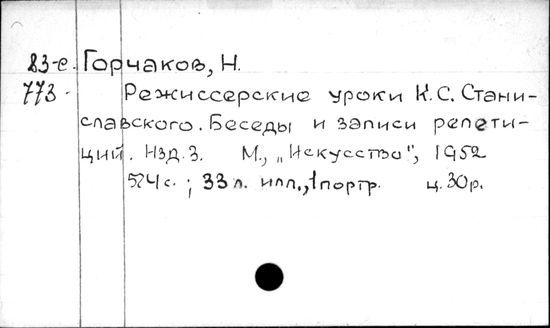 83-е. Горчаков, Н.
773- Режиссерские уроки К.С. Стани-
славского. Беседы и записи репети-
ций. Изд. 3. М., „Искусство", 1952
574с.; 33 л. илл., 1 портр. ц. 30р.